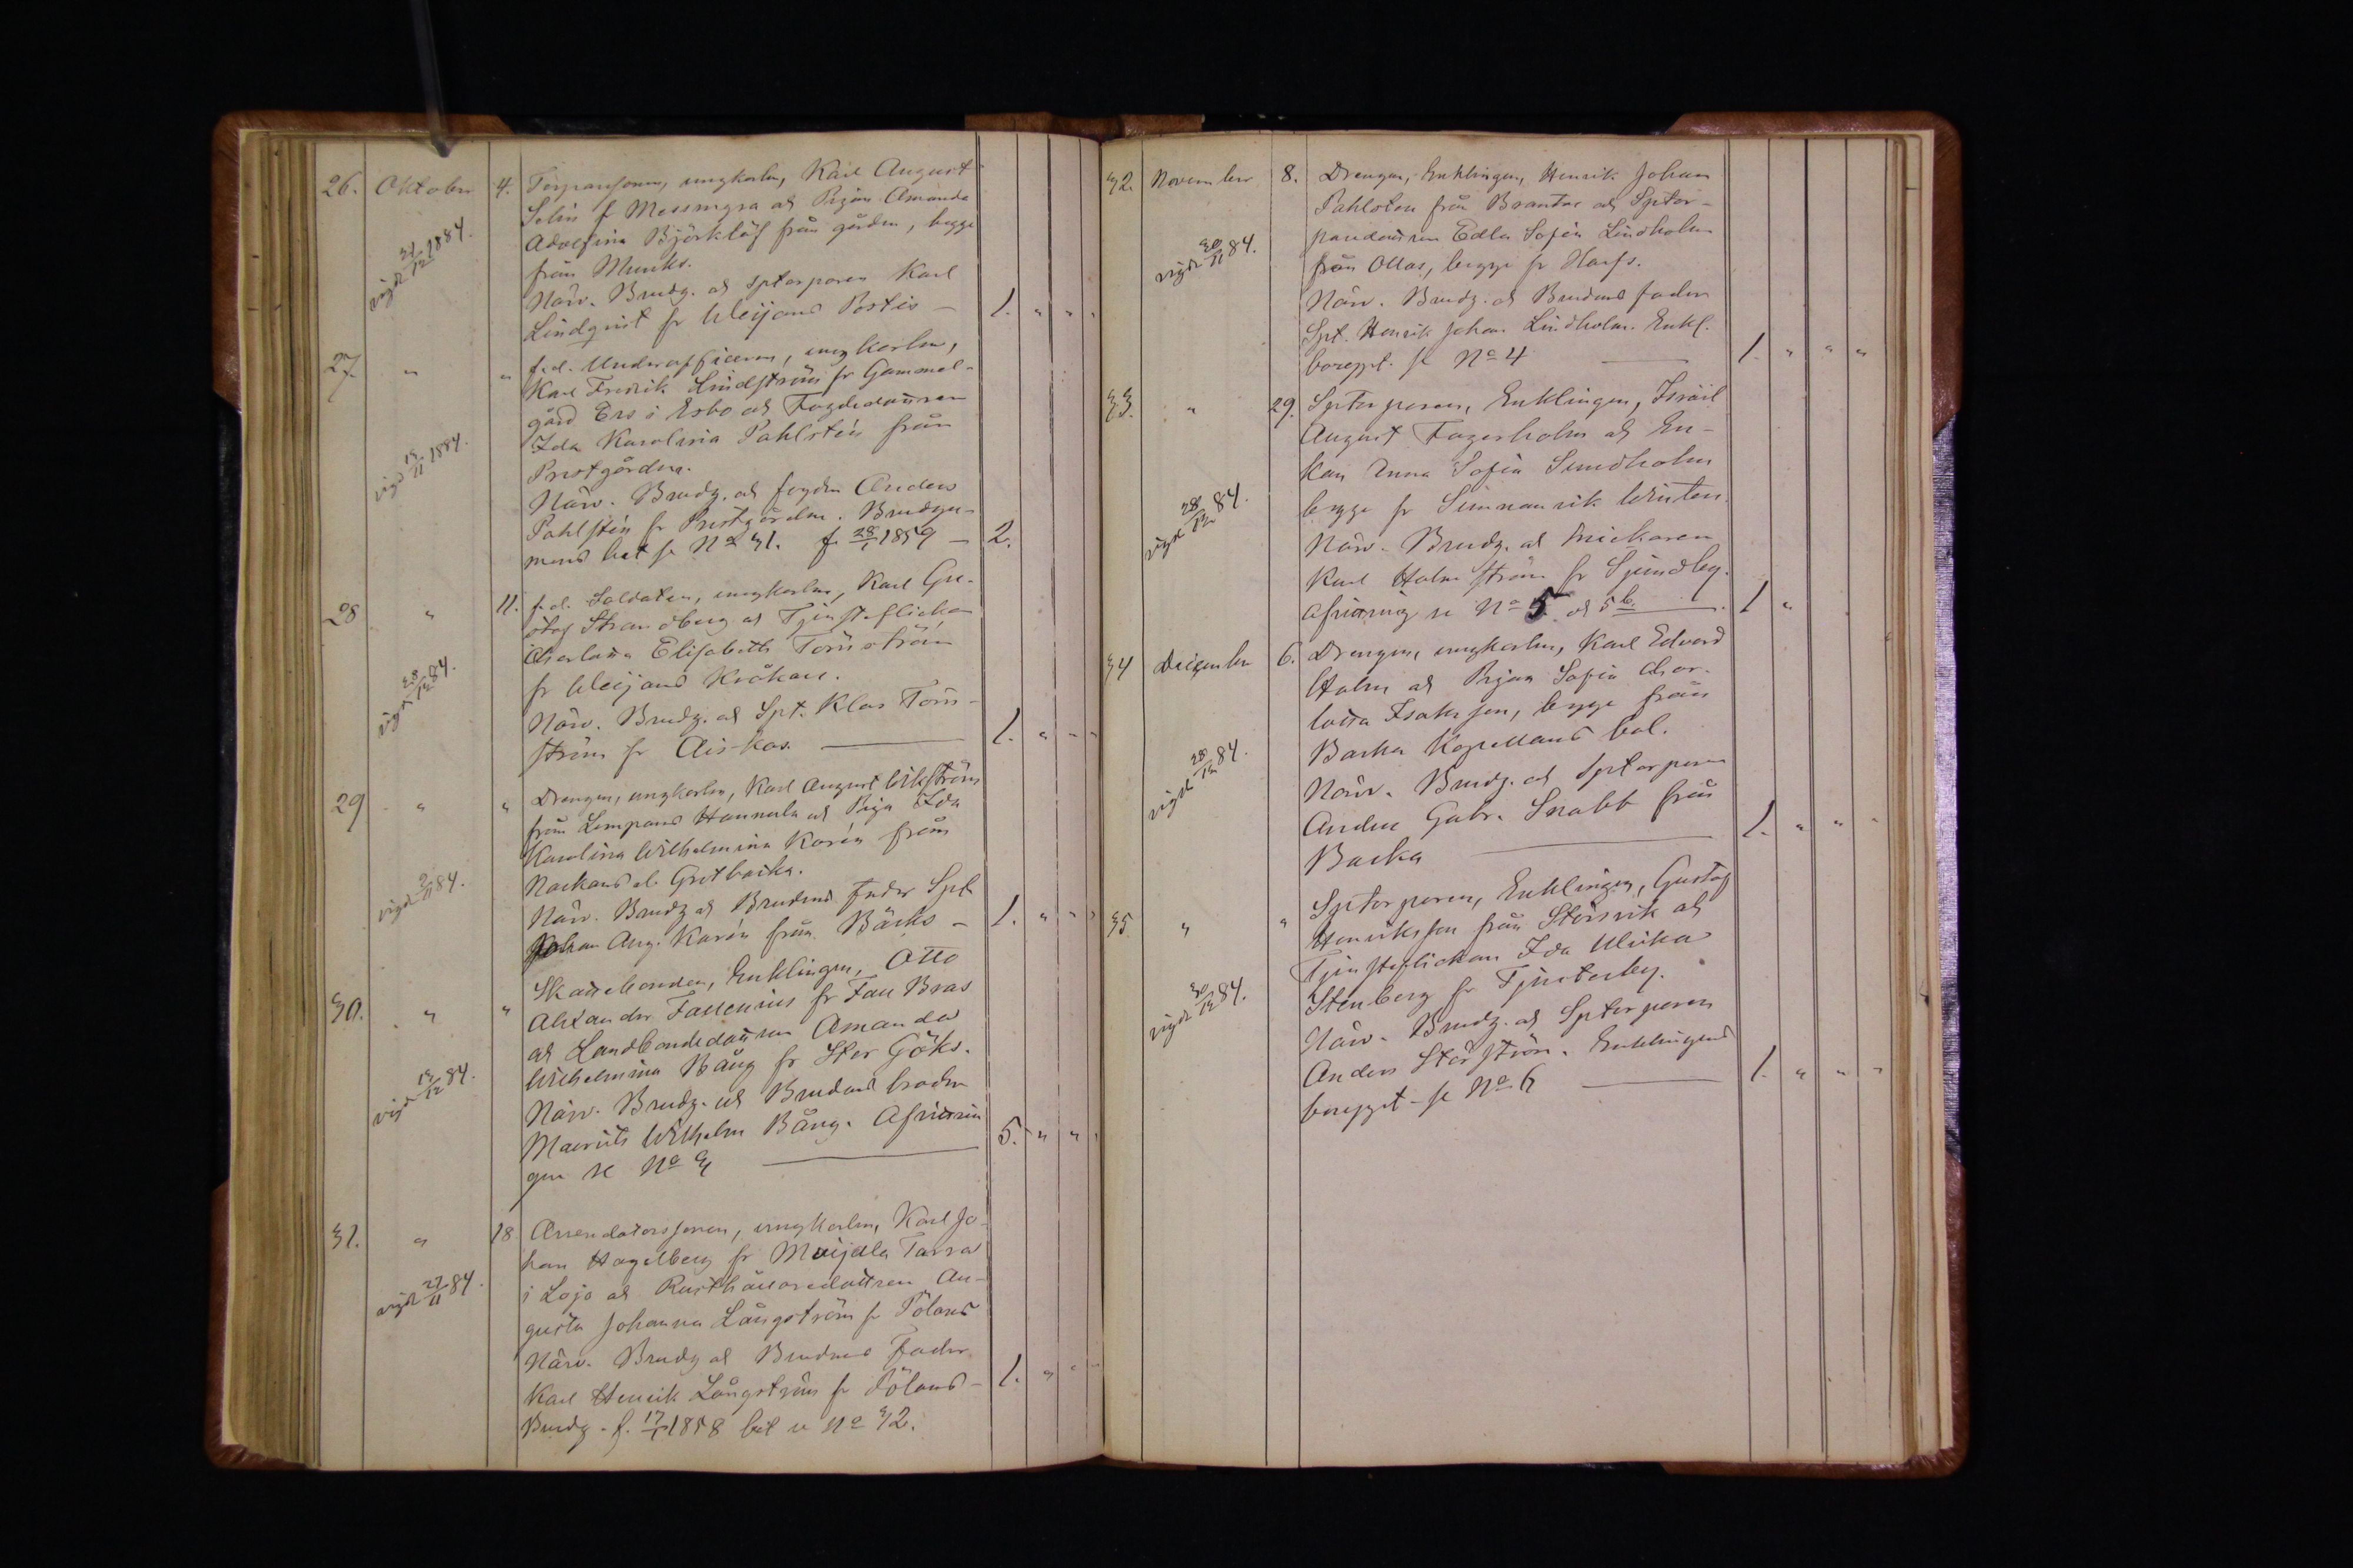 26. Oktober 4. Torparesonen, ungkarlen, Karl August
Selin f Messmgra och Pigan Amanda
Adolfina Björklöf från gården, begge
vigde 31/12 1884.
från Munks.
Närv. Brudg. och sptorparen Karl
Lindqvist fr Weijans Postis — 1. " " "
27. " " f.d. Underofficeren, ungkarlen,
Karl Fredrik Lindström fr Gammel-
gård Ers i Esbo och Fogdedottren
Ida Karolina Pahlstén från
vigd 18/11 1884.
Prestgården.
Närv. Brudg. och fogden Anders
Pahlstén fr Prestgården. Brudgu-
mens bet se No 31. f. 28/1 1859 — 2.
28 " 11. f.d. Soldaten, ungkarlen, Karl Gu-
staf Strandberg och Tjensteflickan
Charlotta Elisabeth Törnström
vigde 28/12 84.
fr Weijans Kråkan.
Närv. Brudg. och Spt. Klas Törn-
ström fr Ais-kos. — 1. " " "
29 " " Drengen, ungkarlen, Karl August Wikström
från Lempans Hannula och Piga Ida
Karolina Wilhelmina Karén från
vigde 9/11 84.
Nackans el. Gretbacka.
Närv. Brudg och Brudens Fader Spt
Johan Aug. Karén från Bäcks — 1. " " "
30. " " Skattebonden, Enklingen, Otto
Alexander Fallenius fr Fall Bras
och Landbondedottren Amanda
Wilhelmina Bång fr Stor Göks.
vigde 18/12 84.
Närv. Brudg. och Brudens broder
Maurits Wilhelm Bång. Afvittrin
gen se No 3 — 5. " " "
31. " 18 Arrendatorssonen, ungkarlen, Karl Jo-
han Hagelberg fr Maijala Tarra
i Lojo och Rusthållaredottren Au-
vigde 27/11 84.
gusta Johanna Långström fr Pölans
Närv. Brudg och Brudens Fader
Karl Henrik Långström fr Pölans — 1. " " "
Brudg. f. 17/1 1858 bet se No 32.
32. November 8. Drengen, Enklingen, Henrik Johan
Pahlsten från Brantas och Sptor-
paredottren Edla Sofia Lindholm
vigde 30/11 84.
från Ollas, begge fr Harfs.
Närv. Brudg. och Brudens fader
Spt. Henrik Johan Lindholm. Enkl.
boreggt. se No 4 — 1. " " "
33. " 29. Sptorparen, Enklingen, Israël
August Fagerholm och En-
kan Anna Sofia Sundholm
vigde 28/12 84.
begge fr Sunnanvik Winten.
Närv. Brudg. och Snickaren
Karl Holmström fr Sjundby.
Afvittring se No 5. och 5b. — 1 "
34 December 6. Drengen, ungkarlen, Karl Edvard
Holm och Pigan Sofia Char-
lotta Isaksson, begge från
Backa Kapellans bol.
vigde 28/12 84.
Närv. Brudg. och Sptorparen
Anders Gabr. Snabb från
Backa — 1. " " "
35 " " Sptorparen, Enklingen, Gustaf
Henriksson från Störsvik och
Tjensteflickan Ida Ulrika
Stenberg fr Tjusterby.
vigde 30/12 84.
Närv. Brudg. och Sptorparen
Anders Störström. Enklingens
boreggt - se No 6 — 1. " " "